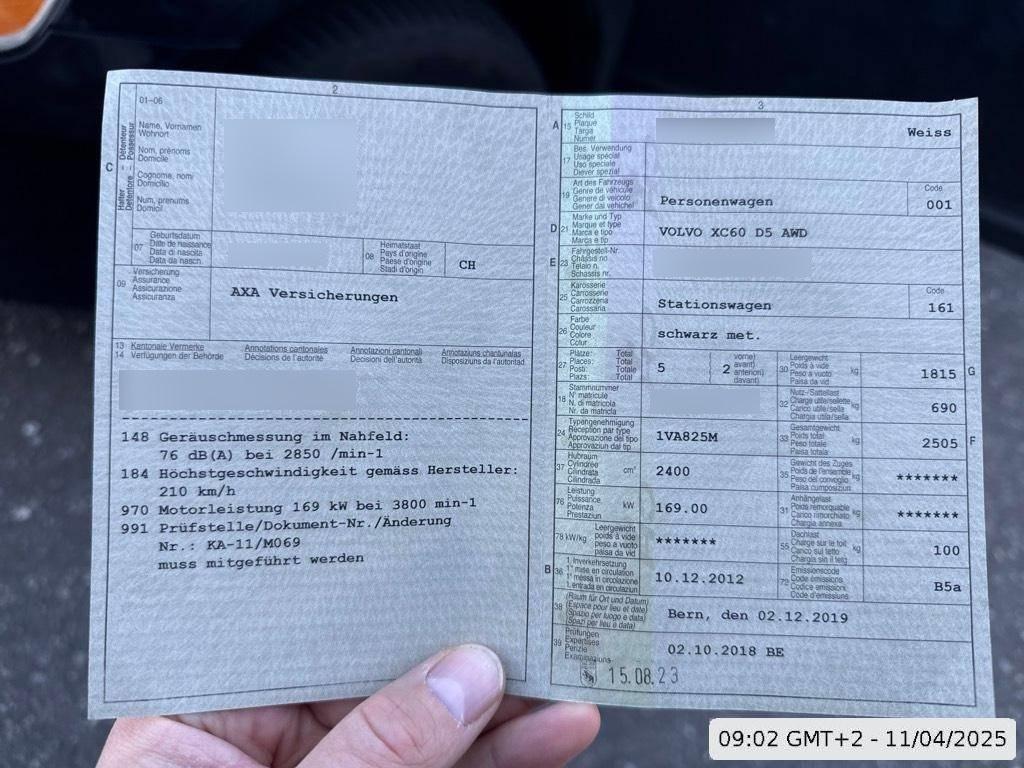 2
01-06
Détenteur
Possessur
C
Halter
Detentore
Name, Vornamen
Wohnort
Nom, prénoms
Domicile
Cognome, nomi
Domicilio
Num, prenums
Domicil
07
Geburtsdatum
Date de naissance
Data di nascita
Data da nasch.
08
Heimatstaat
Pays d'origine
Paese d'origine
Stadi d'origin
CH
09
Versicherung
Assurance
Assicurazione
Assicuranza
AXA Versicherungen
13 Kantonale Vermerke Annotations cantonales Annotazioni cantonali Annotaziuns chantunalas
14 Verfügungen der Behörde Décisions de l'autorité Decisioni dell'autorità Disposiziuns da l'autoritad
148 Geräuschmessung im Nahfeld:
76 dB(A) bei 2850 /min-1
184 Höchstgeschwindigkeit gemäss Hersteller:
210 km/h
970 Motorleistung 169 kW bei 3800 min-1
991 Prüfstelle/Dokument-Nr./Änderung
Nr.: KA-11/M069
muss mitgeführt werden
3
A 15
Schild
Plaque
Targa
Numer
Weiss
17
Bes. Verwendung
Usage spécial
Uso speciale
Diever spezial
19
Art des Fahrzeugs
Genre de véhicule
Genere di veicolo
Gener dal vehichel
Personenwagen
Code
001
D 21
Marke und Typ
Marque et type
Marca e tipo
Marca e tip
VOLVO XC60 D5 AWD
E 23
Fahrgestell-Nr.
Châssis no
Telaio n.
Schassis nr.
25
Karosserie
Carrosserie
Carrozzeria
Carossaria
Stationswagen
Code
161
26
Farbe
Couleur
Colore
Colur
schwarz met.
27
Plätze: Total
Places: Total
Posti: Totale
Plazs: Total
5
2
vorne)
avant)
anteriori)
davant)
30
Leergewicht
Poids à vide
Peso a vuoto
Paisa da vid
kg
1815
G
18
Stammnummer
N° matricule
N. di matricola
Nr. da matricla
32
Nutz-/Sattellast
Charge utile/sellette
Carico utile/sella
Chargia utila/sella
kg
690
24
Typengenehmigung
Réception par type
Approvazione del tipo
Approvaziun dal tip
1VA825M
33
Gesamtgewicht
Poids total
Peso totale
Paisa totala
kg
2505
F
37
Hubraum
Cylindrée
Cilindrata
Cilindrada
cm³
2400
35
Gewicht des Zuges
Poids de l'ensemble
Peso del convoglio
Paisa cumposiziun
kg
*******
76
Leistung
Puissance
Potenza
Prestaziun
kW
169.00
31
Anhängelast
Poids remorquable
Carico rimorchiato
Chargia annexa
kg
*******
78 kW/kg
Leergewicht
poids à vide
peso a vuoto
paisa da vid
*******
55
Dachlast
Charge sur le toit
Carico sul tetto
Chargia sin il tetg
kg
100
B 36
1. Inverkehrsetzung
1re mise en circulation
1a messa in circolazione
1. entrada en circulaziun
10.12.2012
72
Emissionscode
Code émissions
Codice emissioni
Code d'emissiuns
B5a
38
(Raum für Ort und Datum)
(Espace pour lieu et date)
(Spazio per luogo e data)
(Spazi per lieu e data)
Bern, den 02.12.2019
39
Prüfungen
Expertises
Perizie
Examinaziuns
02.10.2018 BE
15.08.23
09:02 GMT+2 - 11/04/2025